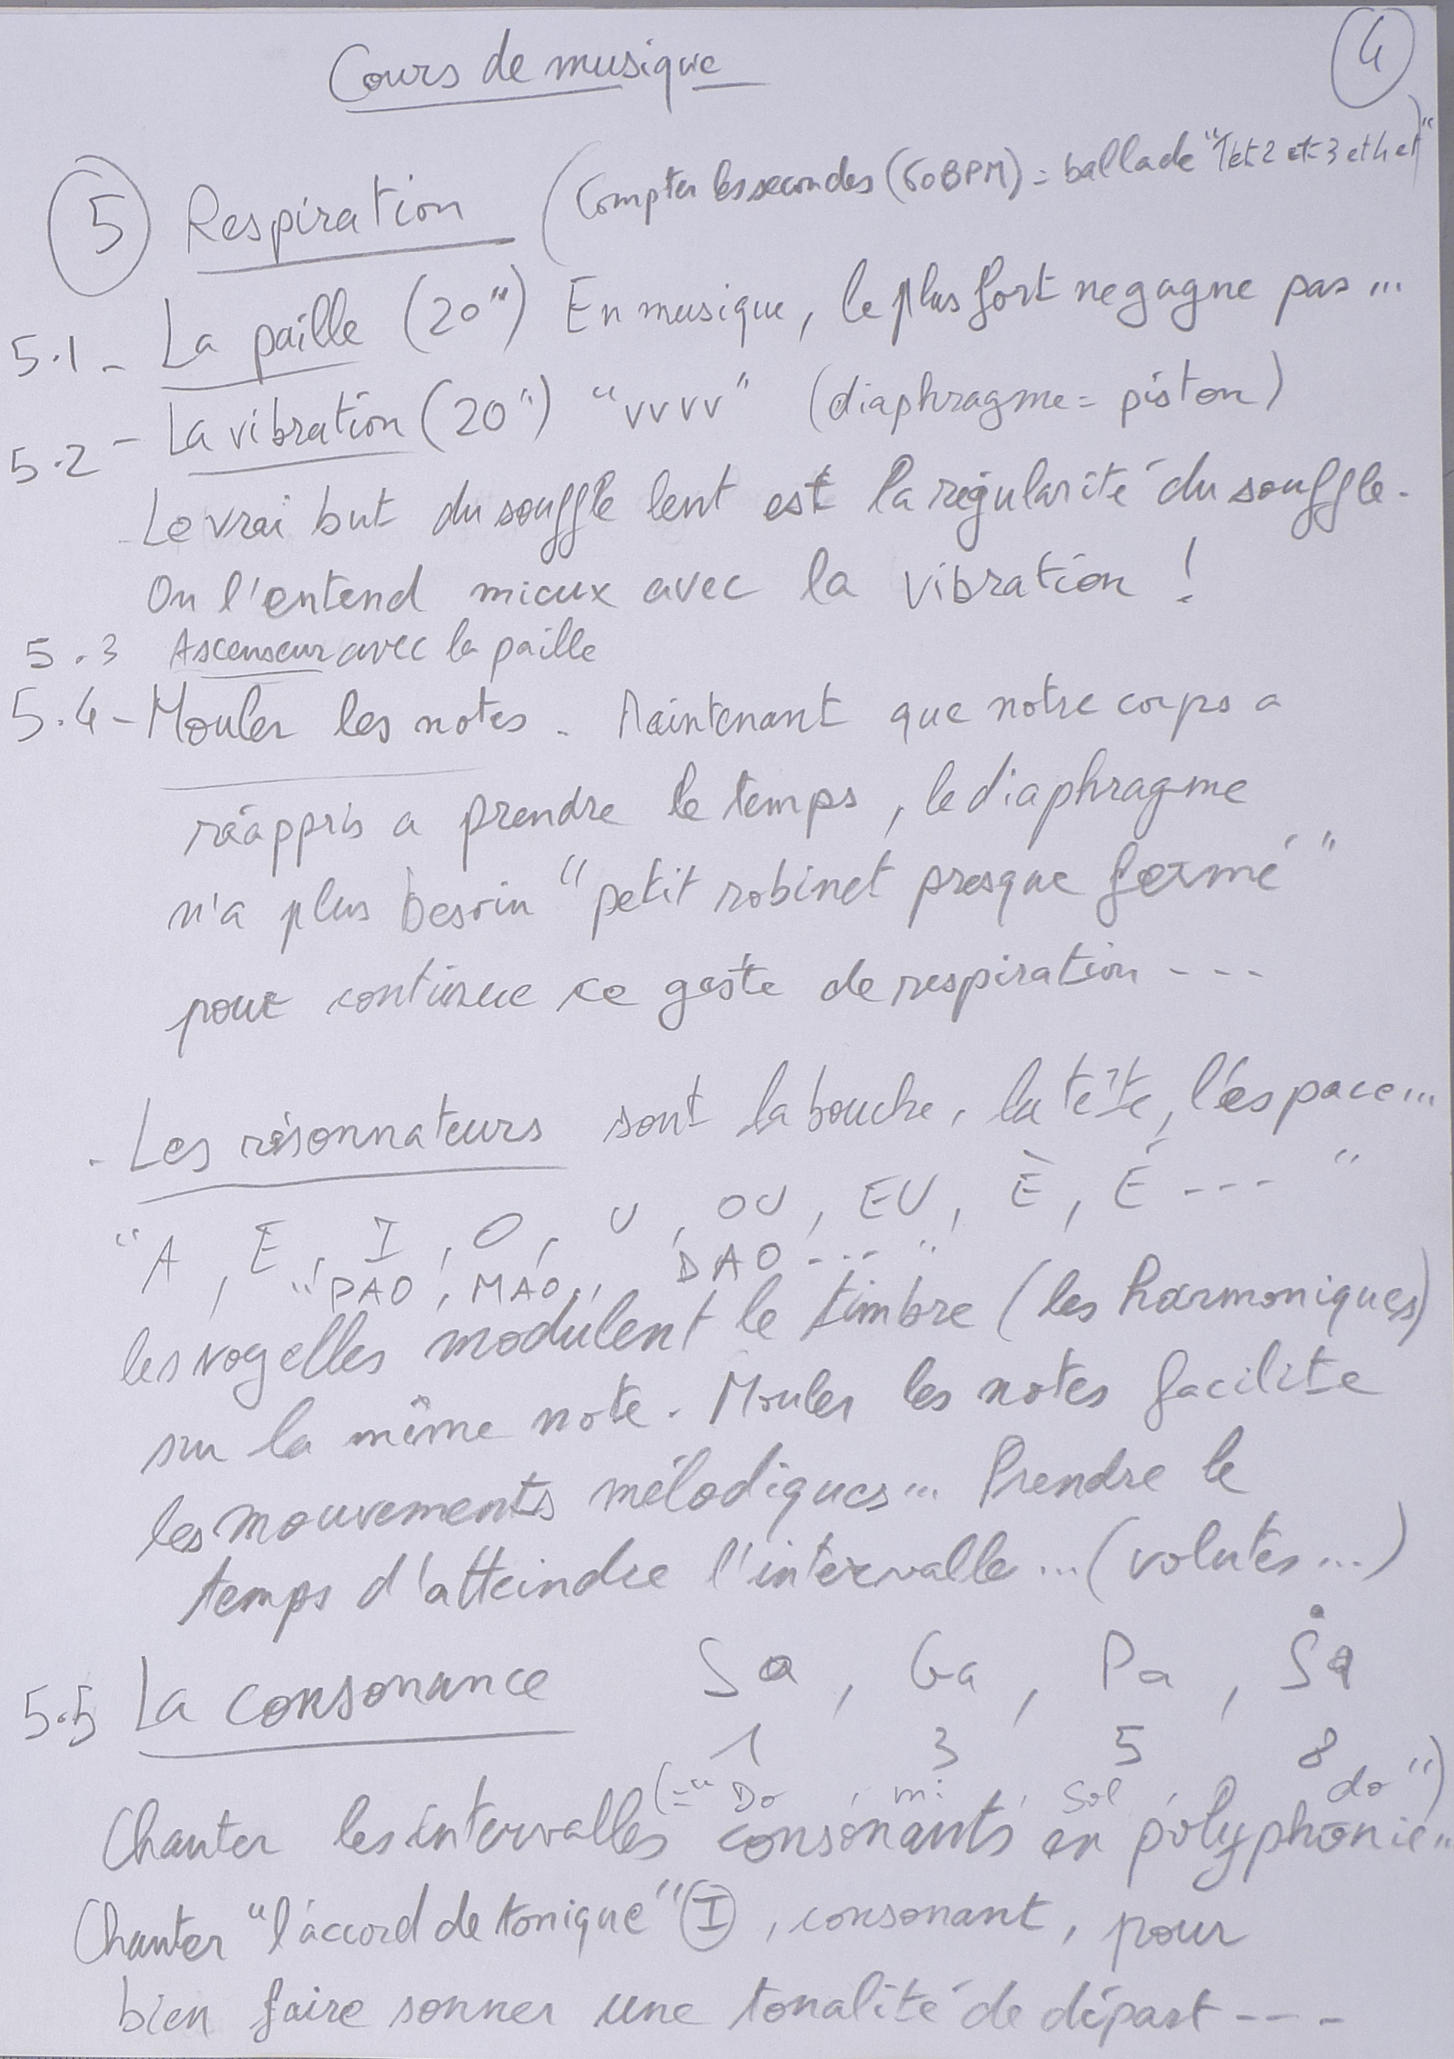 Cours de musique
4
5 Respiration (Compter les secondes (60 BPM) = ballade "1 et 2 et 3 et 4 et")
5.1 - La paille (20") En musique, le plus fort ne gagne pas ...
5.2 - La vibration (20") "vvvv" (diaphragme = piston)
Le vrai but du souffle lent est la régularité du souffle.
On l'entend mieux avec la vibration !
5.3 Ascenseur avec la paille
5.4 - Mouler les notes. Maintenant que notre corps a
réappris a prendre le temps, le diaphragme
n'a plus besoin "petit robinet presque fermé"
pour continuer ce geste de respiration ---
- Les résonnateurs sont la bouche, la tête, l'espace...
"A, E, I, O, U, OU, EU, È, É --- "
"PAO, MAO, DAO --- "
les voyelles modulent le timbre (les harmoniques)
sur la même note. Mouler les notes facilite
les mouvements mélodiques... Prendre le
temps d'atteindre l'intervalle ... (volutes ...)
5.5 La consonance Sa, Ga, Pa, Ṡa
1 3 5 8
(= "Do, mi, Sol, do")
Chanter les intervalles consonants en polyphonie..
Chanter "l'accord de tonique" I, consonant, pour
bien faire sonner une tonalité de départ ---